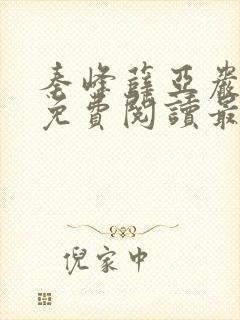 秦峰薛亞嚴
免費閱讀最
倪家中